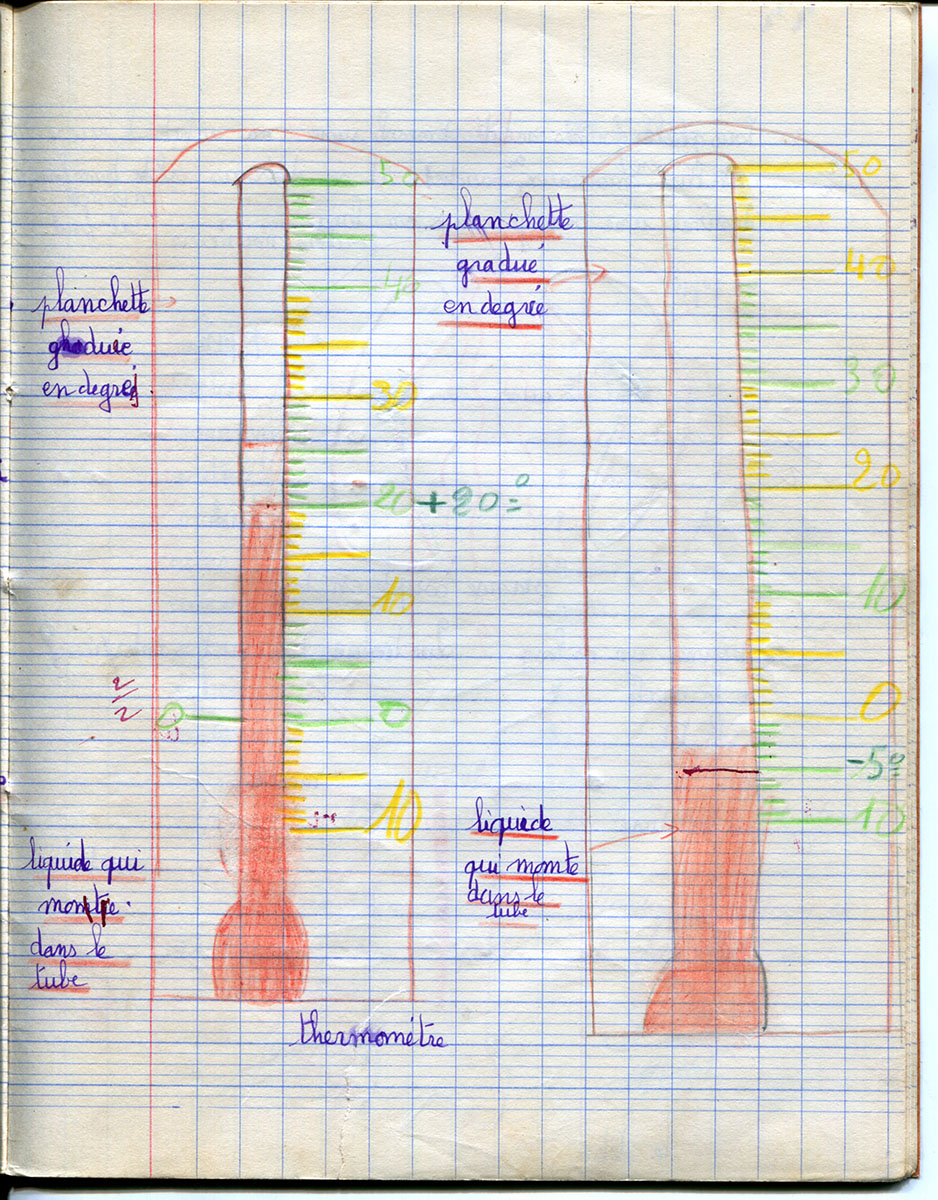 planchette
graduée
en degrés
50
40
30
20 + 20°
10
0
0
10
2/2
liquide qui
monte
dans le
tube
thermométre
planchette
gradué
en degré
50
40
30
20
10
0
-5°
10
liquide
qui monte
dans le
tube